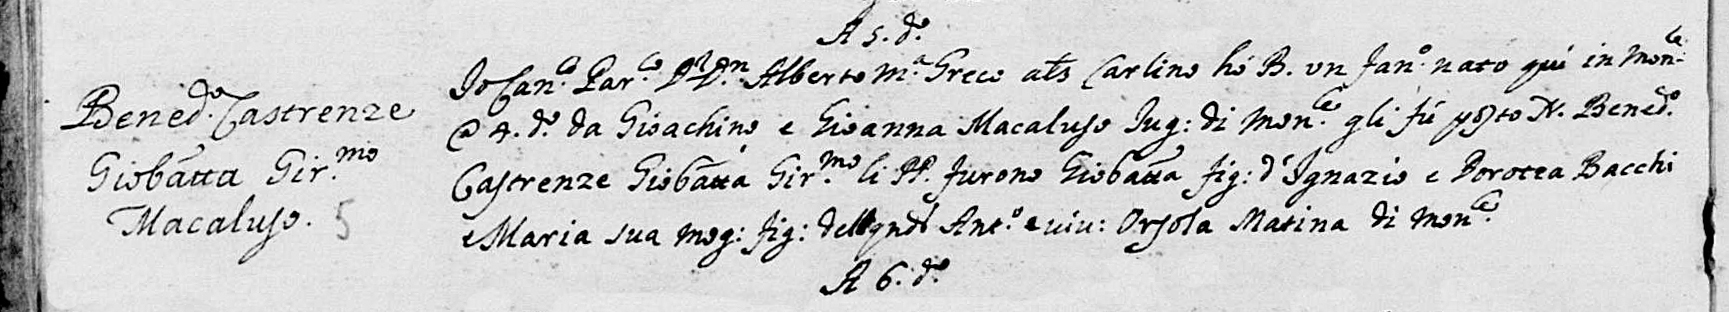 A 5. d.º
Bened.º Castrenze
Giobatta Gir.mo
Macaluso. 5
Io Can.co Par.co D.r D.n Alberto M.a Greco als Carlino hò B. un Fan.º nato quì in Mon.le
a 4. d.º da Gioachino e Gioanna Macaluso Jug: di Mon.le gli fù posto N. Bened.º
Castrenze Giobatta Gir.mo li PP. furono Giobatta fig: d'Ignazio e Dorotea Bacchi
e Maria sua mog: fig: dell qnd Ant.º e viv: Orsola Matina di Mon.le
A 6. d.º